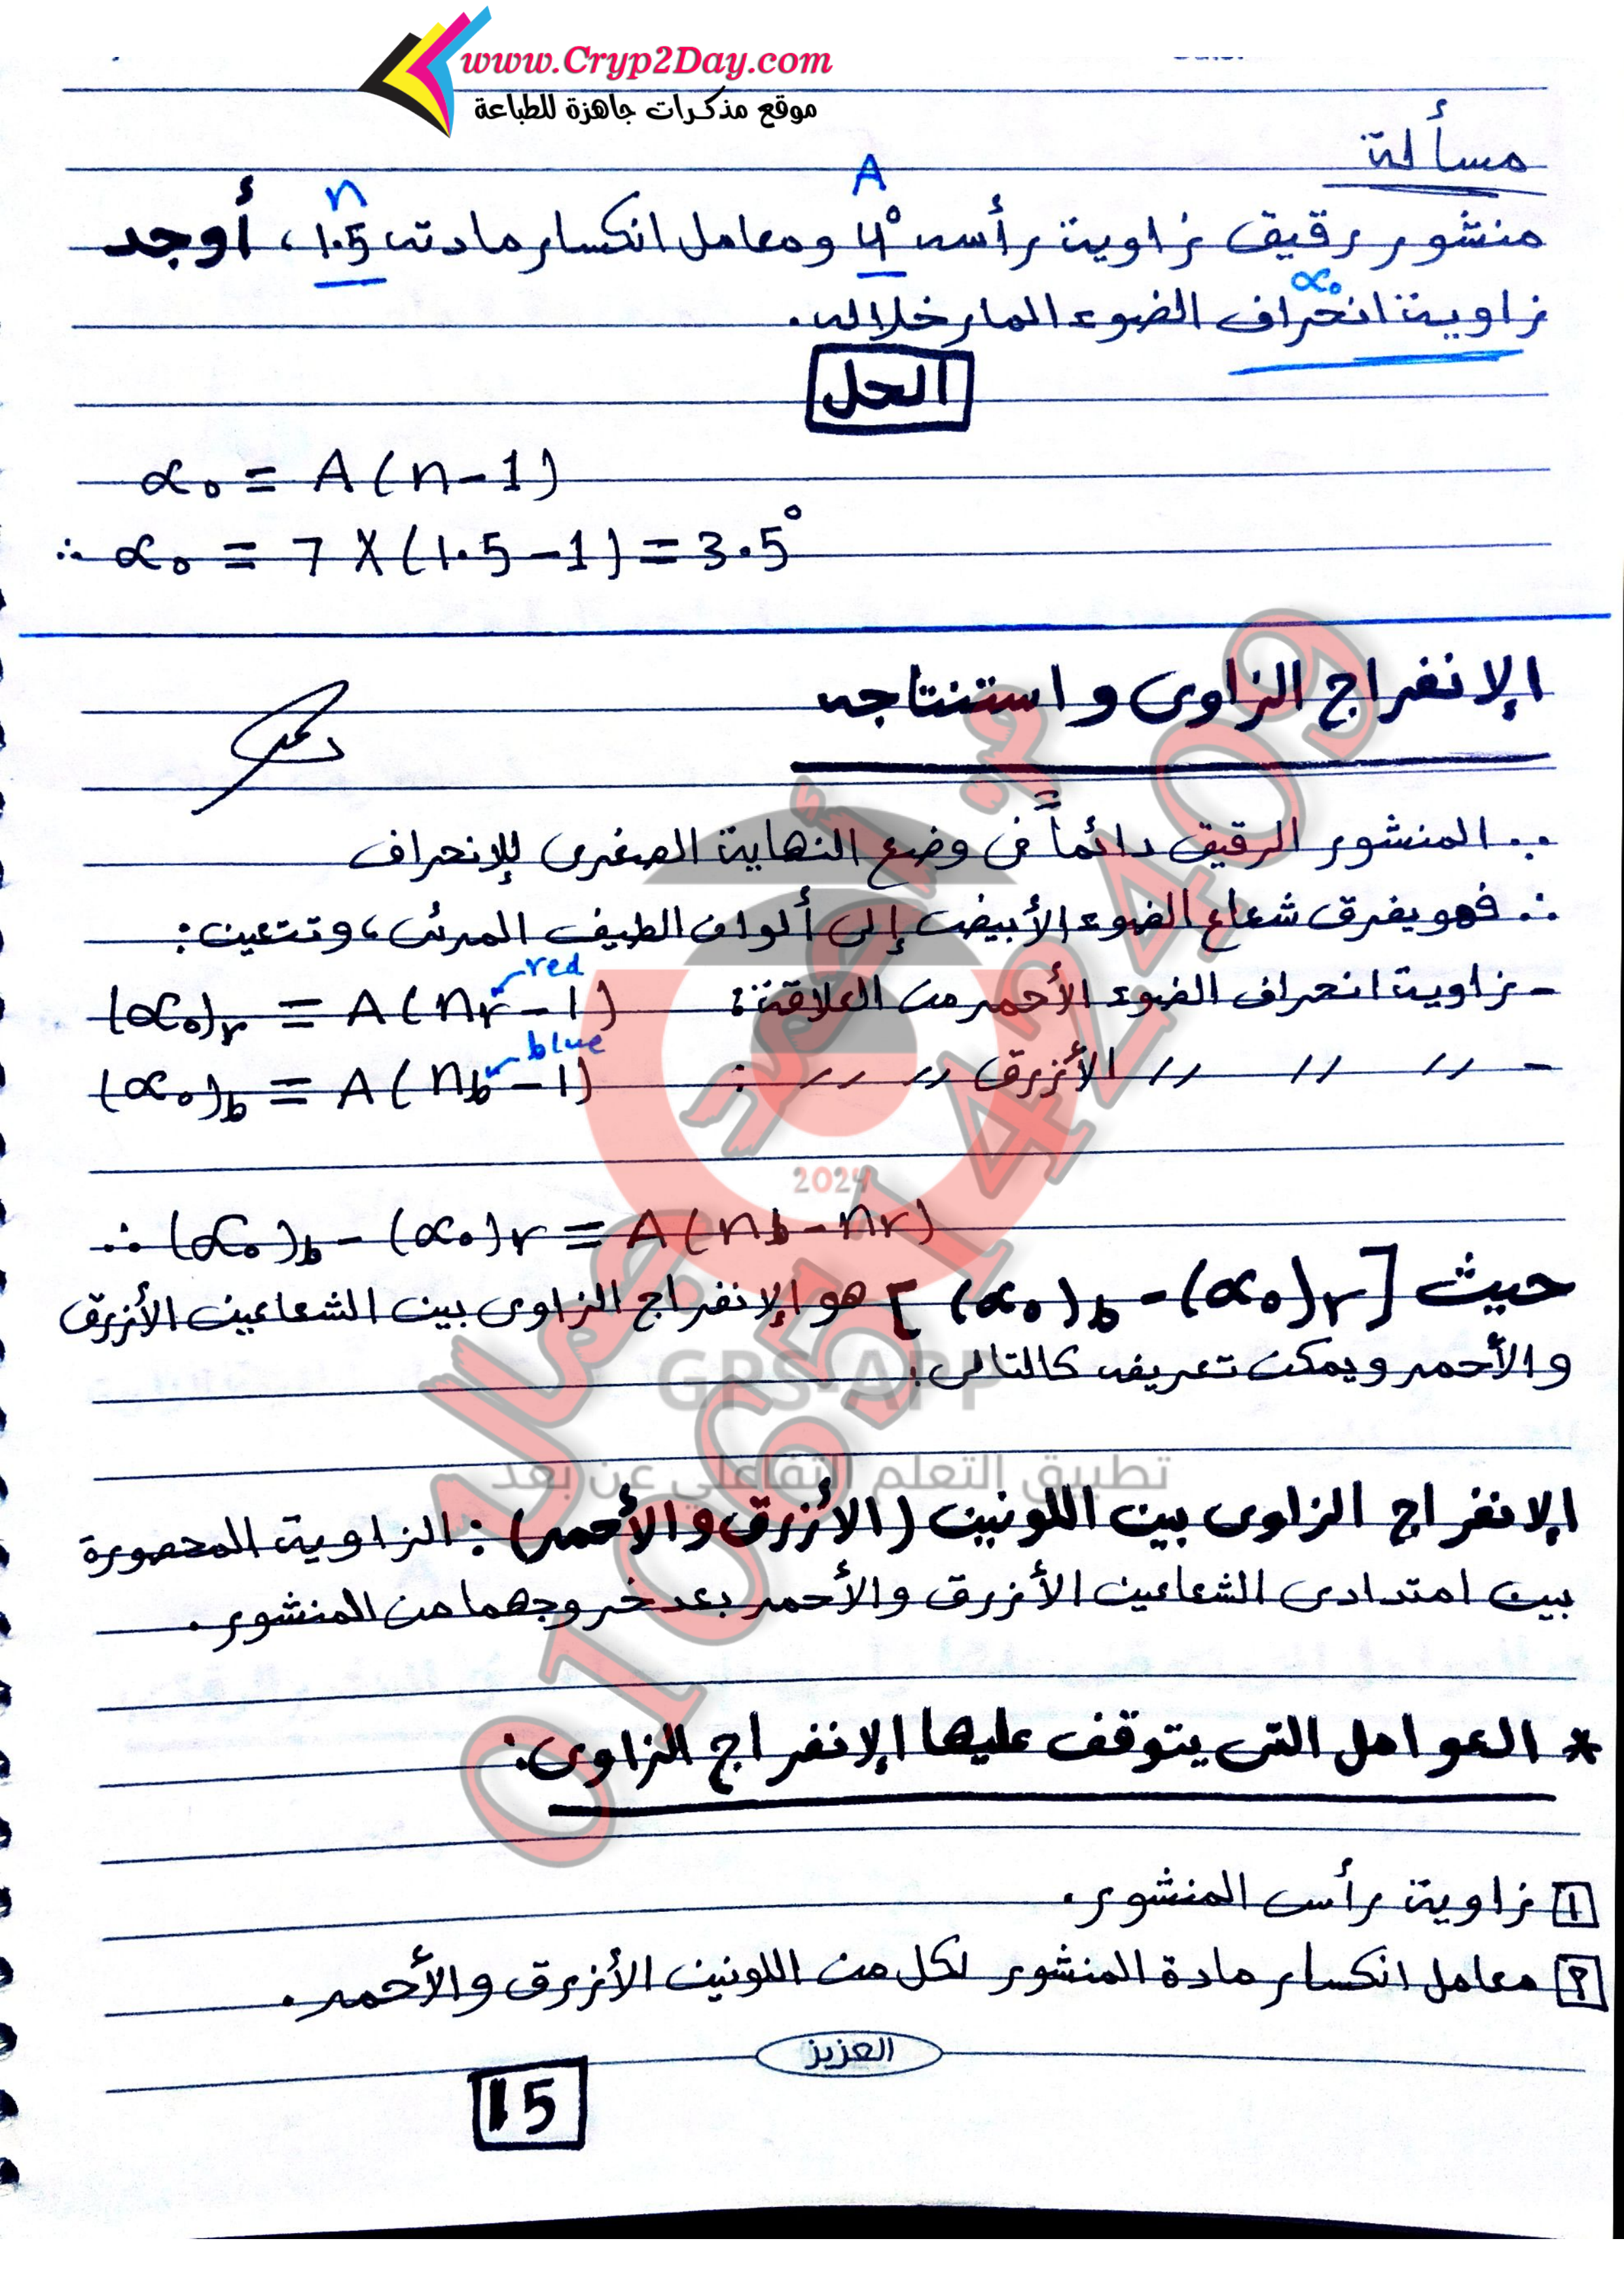 www.Cryp2Day.com
موقع مذكرات جاهزة للطباعة
مسألة
A
n
منشور رقيق زاوية رأسه 4° ومعامل انكسار مادته 1.5، أوجد
α₀
زاوية انحراف الضوء المار خلاله.
الحل
α₀ = A(n-1)
∴ α₀ = 7 X (1.5-1) = 3.5°
الإنفراج الزاوى واستنتاجه
∵ المنشور الرقيق دائماً فى وضع النهاية الصغرى للإنحراف
∴ فهو يفرق شعاع الضوء الأبيض إلى ألوان الطيف المرئى، وتتعين:
red
- زاوية انحراف الضوء الأحمر من العلاقة: (α₀)r = A(nr-1)
blue
- // // // الأزرق // // // : (α₀)b = A(nb-1)
2024
∴ (α₀)b - (α₀)r = A(nb-nr)
حيث [(α₀)b - (α₀)r] هو الإنفراج الزاوى بين الشعاعين الأزرق
والأحمر ويمكن تعريفه كالتالى:
GPS APP
تطبيق التعلم التفاعلي عن بعد
الإنفراج الزاوى بين اللونين (الأزرق والأحمر): الزاوية المحصورة
بين امتدادى الشعاعين الأزرق والأحمر بعد خروجهما من المنشور.
* العوامل التى يتوقف عليها الإنفراج الزاوى:
1 زاوية رأس المنشور.
2 معامل انكسار مادة المنشور لكل من اللونين الأزرق والأحمر.
العزيز
15
01065142409